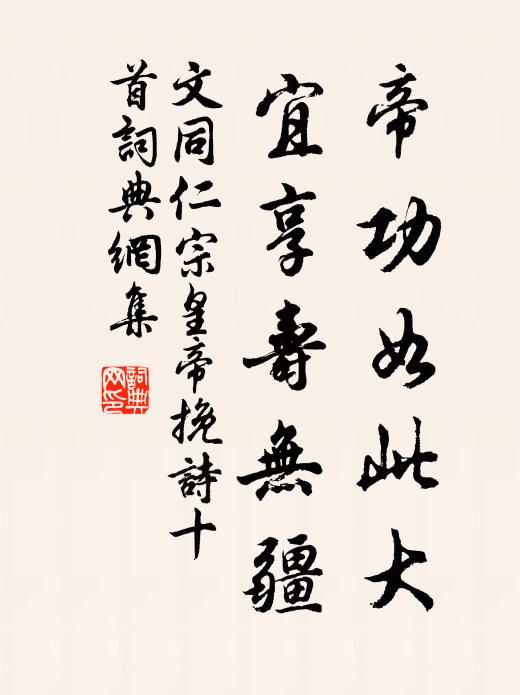 帝功如此大
宜享壽無疆
文同仁宗皇帝挽詩十
首詞典網集
詞典網印